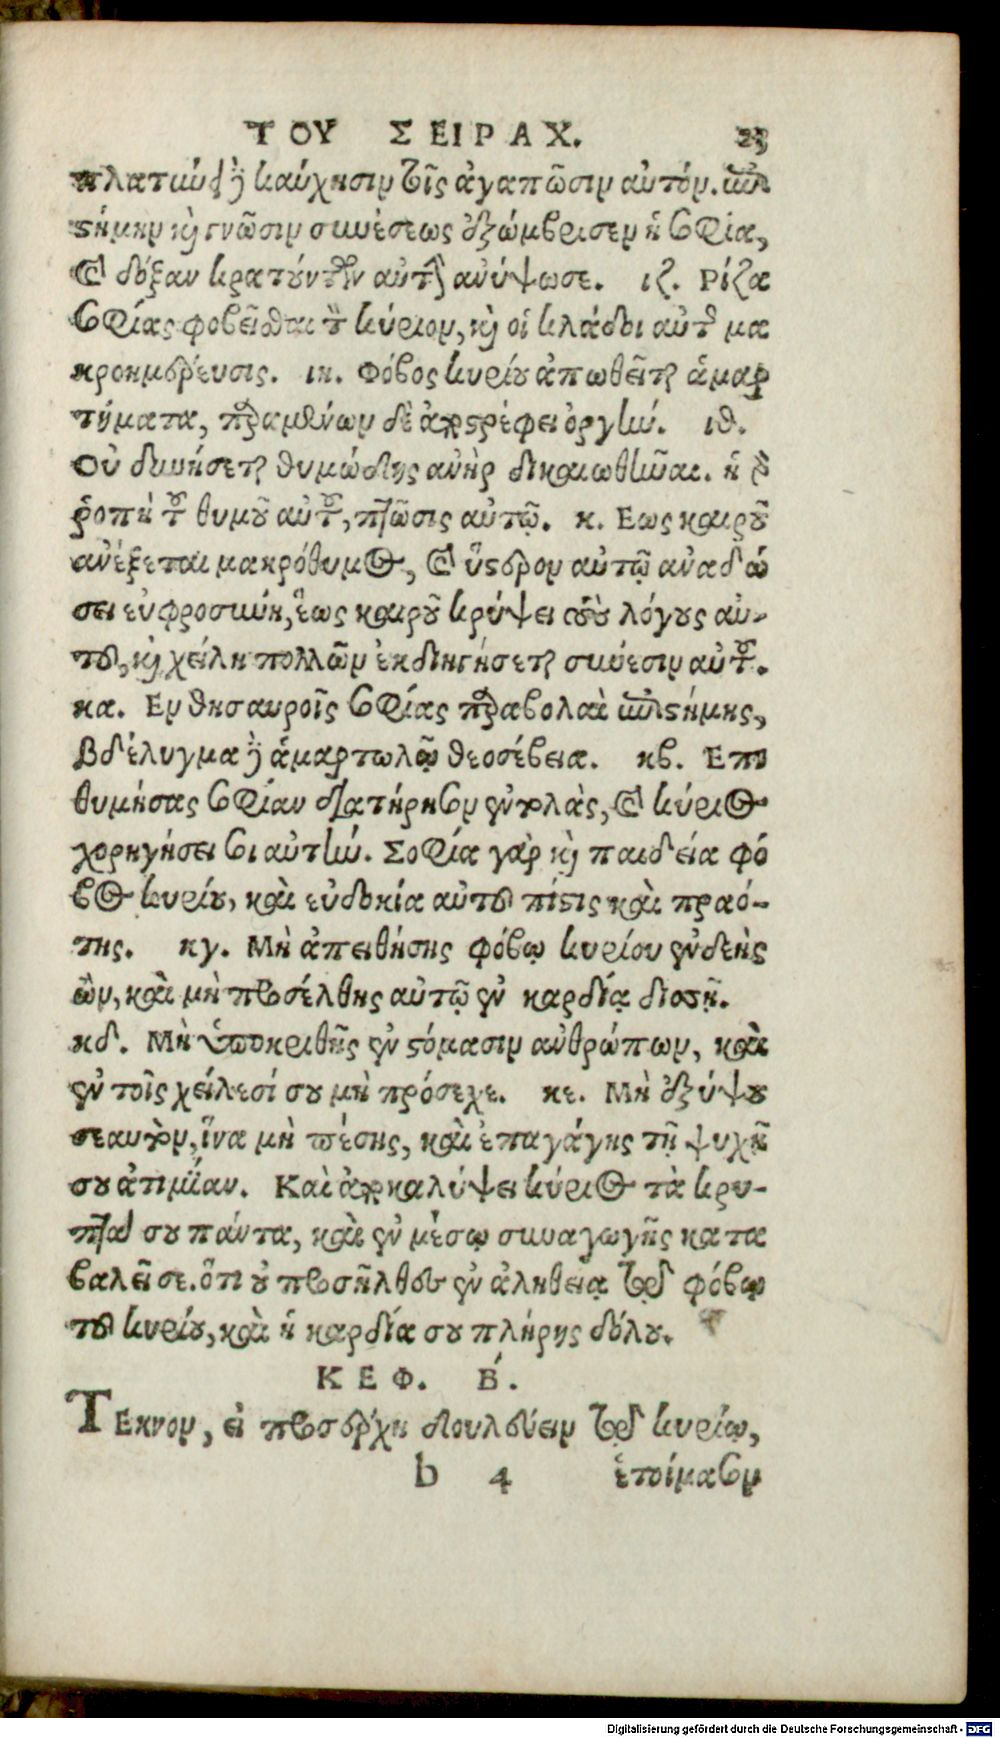 ΤΟΥ ΣΕΙΡΑΧ. 23
πλατιώει δὲ καύχησιν τοῖς ἀγαπῶσιν αὐτόν. ἐπι
στήμην καὶ γνῶσιν συνέσεως ἐξώμβρισεν ἡ σοφία,
καὶ δόξαν κρατούντων αὐτῆς ἀνύψωσε. ιζ. Ρίζα
σοφίας φοβεῖσθαι τὸν κύριον, καὶ οἱ κλάδοι αὐτῆς μα
κροημέρευσις. ιη. Φόβος κυρίου ἀπωθεῖται ἁμαρ
τήματα, παραμένων δὲ ἀποστρέφει ὀργήν. ιθ.
Οὐ δυνήσεται θυμώδης ἀνὴρ δικαιωθῆναι. ἡ γὰρ
ῥοπὴ τοῦ θυμοῦ αὐτοῦ, πτῶσις αὐτῷ. κ. Εως καιροῦ
ἀνέξεται μακρόθυμος, καὶ ὕστερον αὐτῷ ἀναδώ
σει εὐφροσύνη, ἕως καιροῦ κρύψει τοὺς λόγους αὐ-
τοῦ, καὶ χείλη πολλῶν ἐκδιηγήσεται σύνεσιν αὐτοῦ.
κα. Εν θησαυροῖς σοφίας παραβολαὶ ἐπιστήμης,
βδέλυγμα δὲ ἁμαρτωλῷ θεοσέβεια. κβ. Επι
θυμήσας σοφίαν διατήρησον ἐντολὰς, καὶ κύριος
χορηγήσει σοι αὐτήν. Σοφία γὰρ καὶ παιδεία φό
βος κυρίου, καὶ εὐδοκία αὐτοῦ πίστις καὶ πραό-
της. κγ. Μὴ ἀπειθήσης φόβῳ κυρίου ἐνδεὴς
ὢν, καὶ μὴ προσέλθης αὐτῷ ἐν καρδίᾳ δισσῇ.
κδ. Μὴ ὑποκριθῇς ἐν στόμασιν ἀνθρώπων, καὶ
ἐν τοῖς χείλεσί σου μὴ πρόσεχε. κε. Μὴ ἐξύψου
σεαυτὸν, ἵνα μὴ πέσης, καὶ ἐπαγάγης τῇ ψυχῇ
σου ἀτιμίαν. Καὶ ἀποκαλύψει κύριος τὰ κρυ-
πτά σου πάντα, καὶ ἐν μέσῳ συναγωγῆς κατα
βαλεῖ σε. ὅτι οὐ προσῆλθες ἐν ἀληθείᾳ τῷ φόβῳ
τοῦ κυρίου, καὶ ἡ καρδία σου πλήρης δόλου.
ΚΕΦ. Β΄.
ΤΕκνον, εἰ προσέρχη δουλεύειν τῷ κυρίῳ,
b 4 ἑτοίμασον
Digitalisierung gefördert durch die Deutsche Forschungsgemeinschaft - DFG